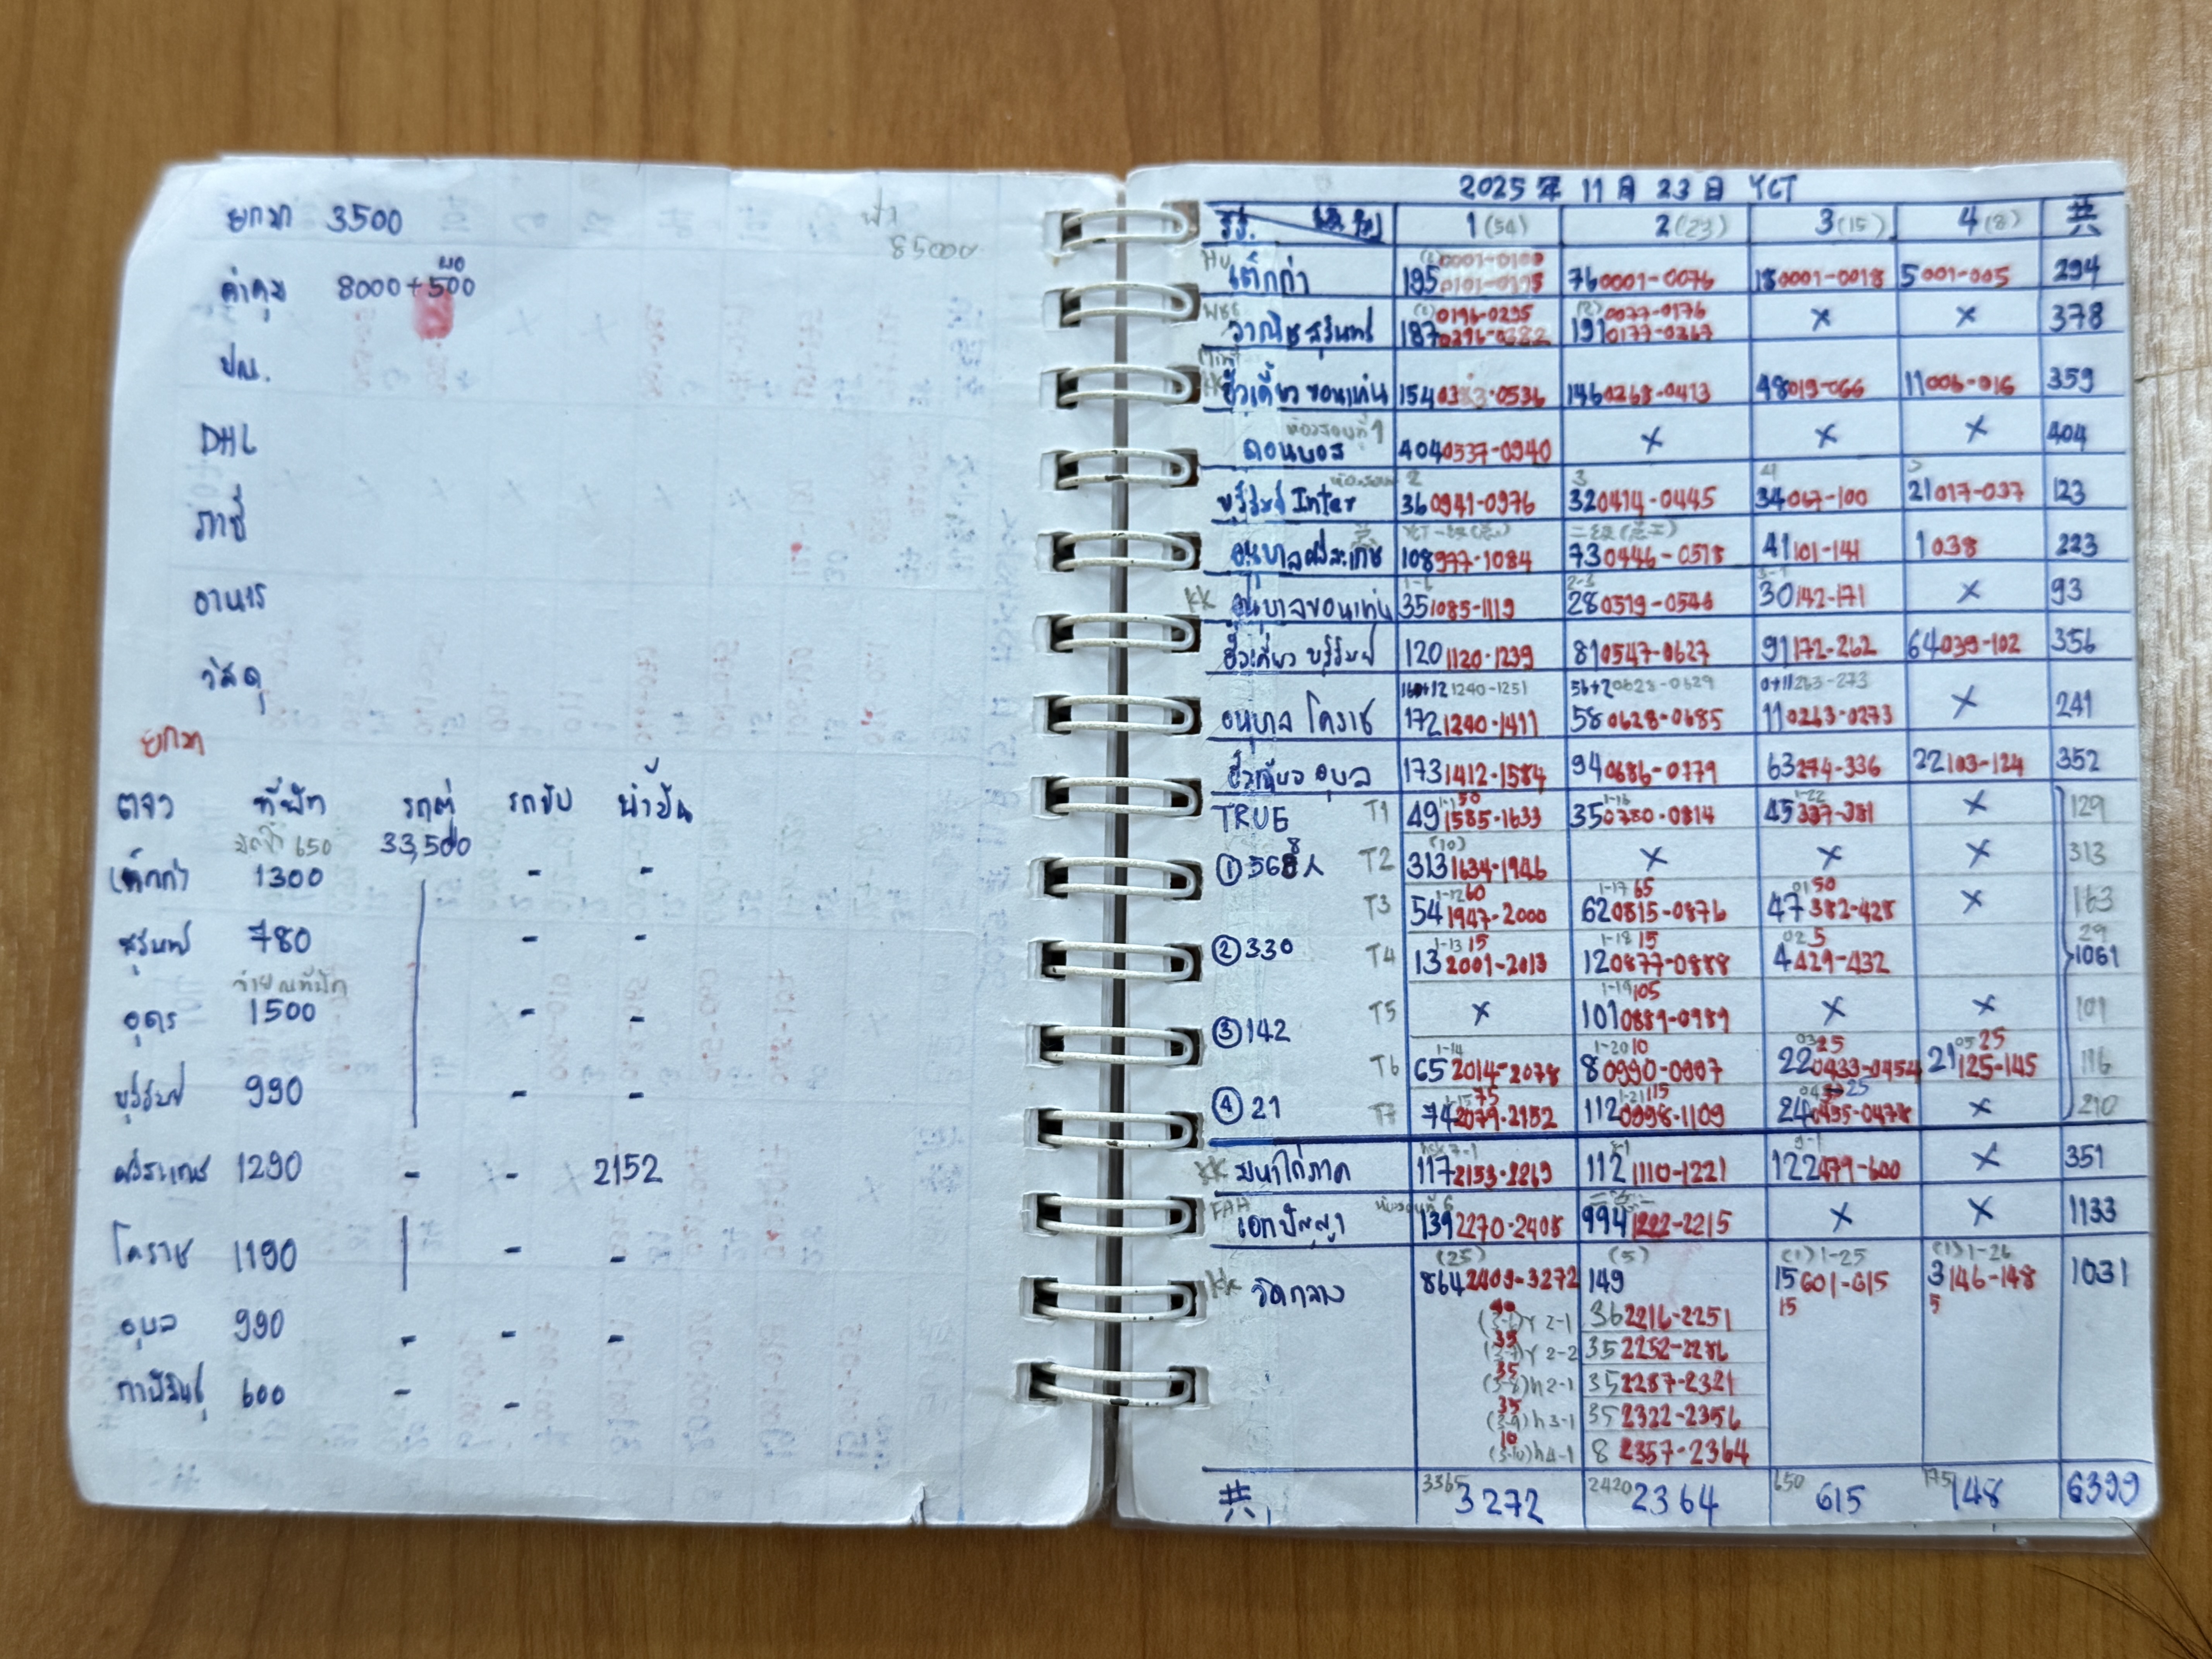 ยกมา 3500
ฟ้า 85000
ค่าคุม 8000+500
ปณ.
DHL
ภาษี
อาหาร
วัสดุ
ยกมา
ตจว ที่พัก รถตู้ รถขับ น้ำมัน
มัดจำ 650 33,500
เต็กก่า 1300 - -
สุรินทร์ 780 - -
จ่าย ณ ที่พัก
อุดร 1500 - -
บุรีรัมย์ 990 - -
ศรีสะเกษ 1290 - - 2152
โคราช 1190 - -
อุบล 990 - - -
กาฬสินธุ์ 600 - -
2025年 11月 23日 YCT
รร. 1(54) 2(23) 3(15) 4(8) 共
(2) 0001-0100
เต็กก่า 195 0101-0195 76 0001-0076 18 0001-0018 5 001-005 294
(2) 0196-0295 (2) 0077-0176
วาณิชสุรินทร์ 187 0296-0382 191 0177-0267 × × 378
ฮั้วเคี้ยว ขอนแก่น 154 0383-0536 146 0268-0413 48 019-066 11 006-016 359
ห้องสอบที่ 1
ดอนบอส 404 0537-0940 × × × 404
ห้องสอบ 2 3 4 5
บุรีรัมย์ Inter 36 0941-0976 32 0414-0445 34 067-100 21 017-037 123
อนุบาลศรีสะเกษ 108 977-1084 73 0446-0518 41 101-141 1 038 223
KK 1-6 2-3 3-1
อนุบาลขอนแก่น 35 1085-1119 28 0519-0546 30 142-171 × 93
ฮั้วเคี้ยว บุรีรัมย์ 120 1120-1239 81 0547-0627 91 172-262 64 039-102 356
160+12 1240-1251 56+2 0628-0629 0+11 263-273
อนุบาล โคราช 172 1240-1411 58 0628-0685 11 0263-0273 × 241
ฮั้วเคี้ยว อุบล 173 1412-1584 94 0686-0779 63 274-336 22 103-124 352
1-11 50 1-16 1-22
TRUE T1 49 1585-1633 35 0780-0814 45 337-381 × 129
(10)
① 568人 T2 313 1634-1946 × × × 313
1-12 60 1-17 65 01 50
T3 54 1947-2000 62 0815-0876 47 382-428 × 163
1-13 15 1-18 15 02 5 29
② 330 T4 13 2001-2013 12 0877-0888 4 429-432 1061
1-19 105
③ 142 T5 × 101 0889-0989 × × 101
1-14 1-20 10 03 25 05 25
T6 65 2014-2078 8 0990-0997 22 0433-0454 21 125-145 116
1-15 75 1-21 115 04 25
④ 21 T7 74 2079-2152 112 0998-1109 24 0455-0478 × 210
KK มหาไถ่ภาค 117 2153-2269 112 1110-1221 122 479-600 × 351
FAH ห้องสอบที่ 6
เอกปัญญา 139 2270-2408 994 1222-2215 × × 1133
(25) (5) (1) 1-25 (1) 1-26
KK วัดกลาง 864 2409-3272 149 15 601-615 3 146-148 1031
40 15 5
(3-6) Y 2-1 36 2216-2251
35
(3-7) Y 2-2 35 2252-2286
35
(3-8) h 2-1 35 2287-2321
35
(3-9) h 3-1 35 2322-2356
10
(3-10) h 4-1 8 2357-2364
共 3365 3272 2420 2364 650 615 175 148 6399